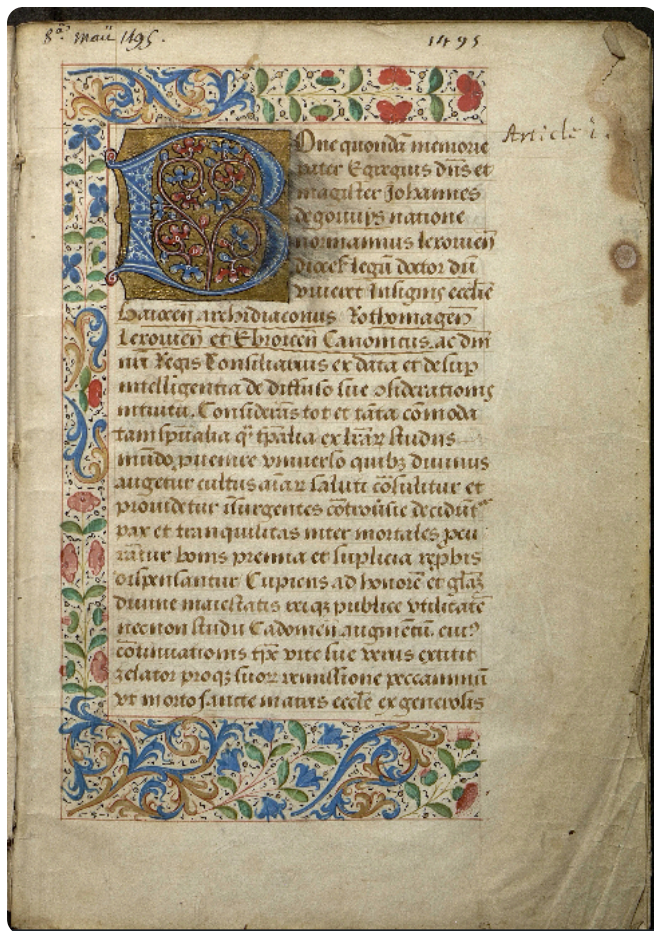 8ᵃ. maii 1495.
1495
Article 1.
Bone quondã memorie
pater Egregius dñs et
magister Johannes
de gouuys natione
normannus lexouieñ
dioces legũ doctor dũ
viueret Insignis ecclie
Baioceñ archidiaconus Rothomageñ
lexouieñ et Ebroiceñ Canonicus ac dñi
nri Regis Consiliarius ex data et desup
intelligentia de diffuso sue ɔsiderationis
intuitu. Considerãs tot et tãta cõmoda
tam spũalia q̃ tpãlia ex lrãꝝ studiis
mũdo puenire vniuerso quibꝫ diuinus
augetur cultus aĩaꝝ saluti cõsulitur et
prouidetur ĩsurgentes cõtrouẽsie decidũt
pax et tranquilitas inter mortales pcu
rãtur bonis premia et suplicia repbis
dispensantur Cupiens ad honorẽ et glãꝫ
diuine maiestatis reiqꝫ publice vtilitatẽ
necnon studii Cadomeñ augmentũ cui9
cõtinuationis tpẽ vite sue verus extitit
zelator proqꝫ suoꝝ remissione peccaminũ
vt morto sancte matris ecclẽ ex generosis